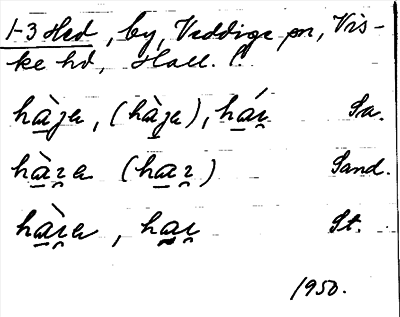 1-3 Hed, by, Veddige sn, Vis-
ke hd, Hall. l.
hàja, (hàja), hái̯ Sa.
hàɪ̯a (haɪ̯) Sand.
hàɪ̯a, haɪ̯ St.
1950.